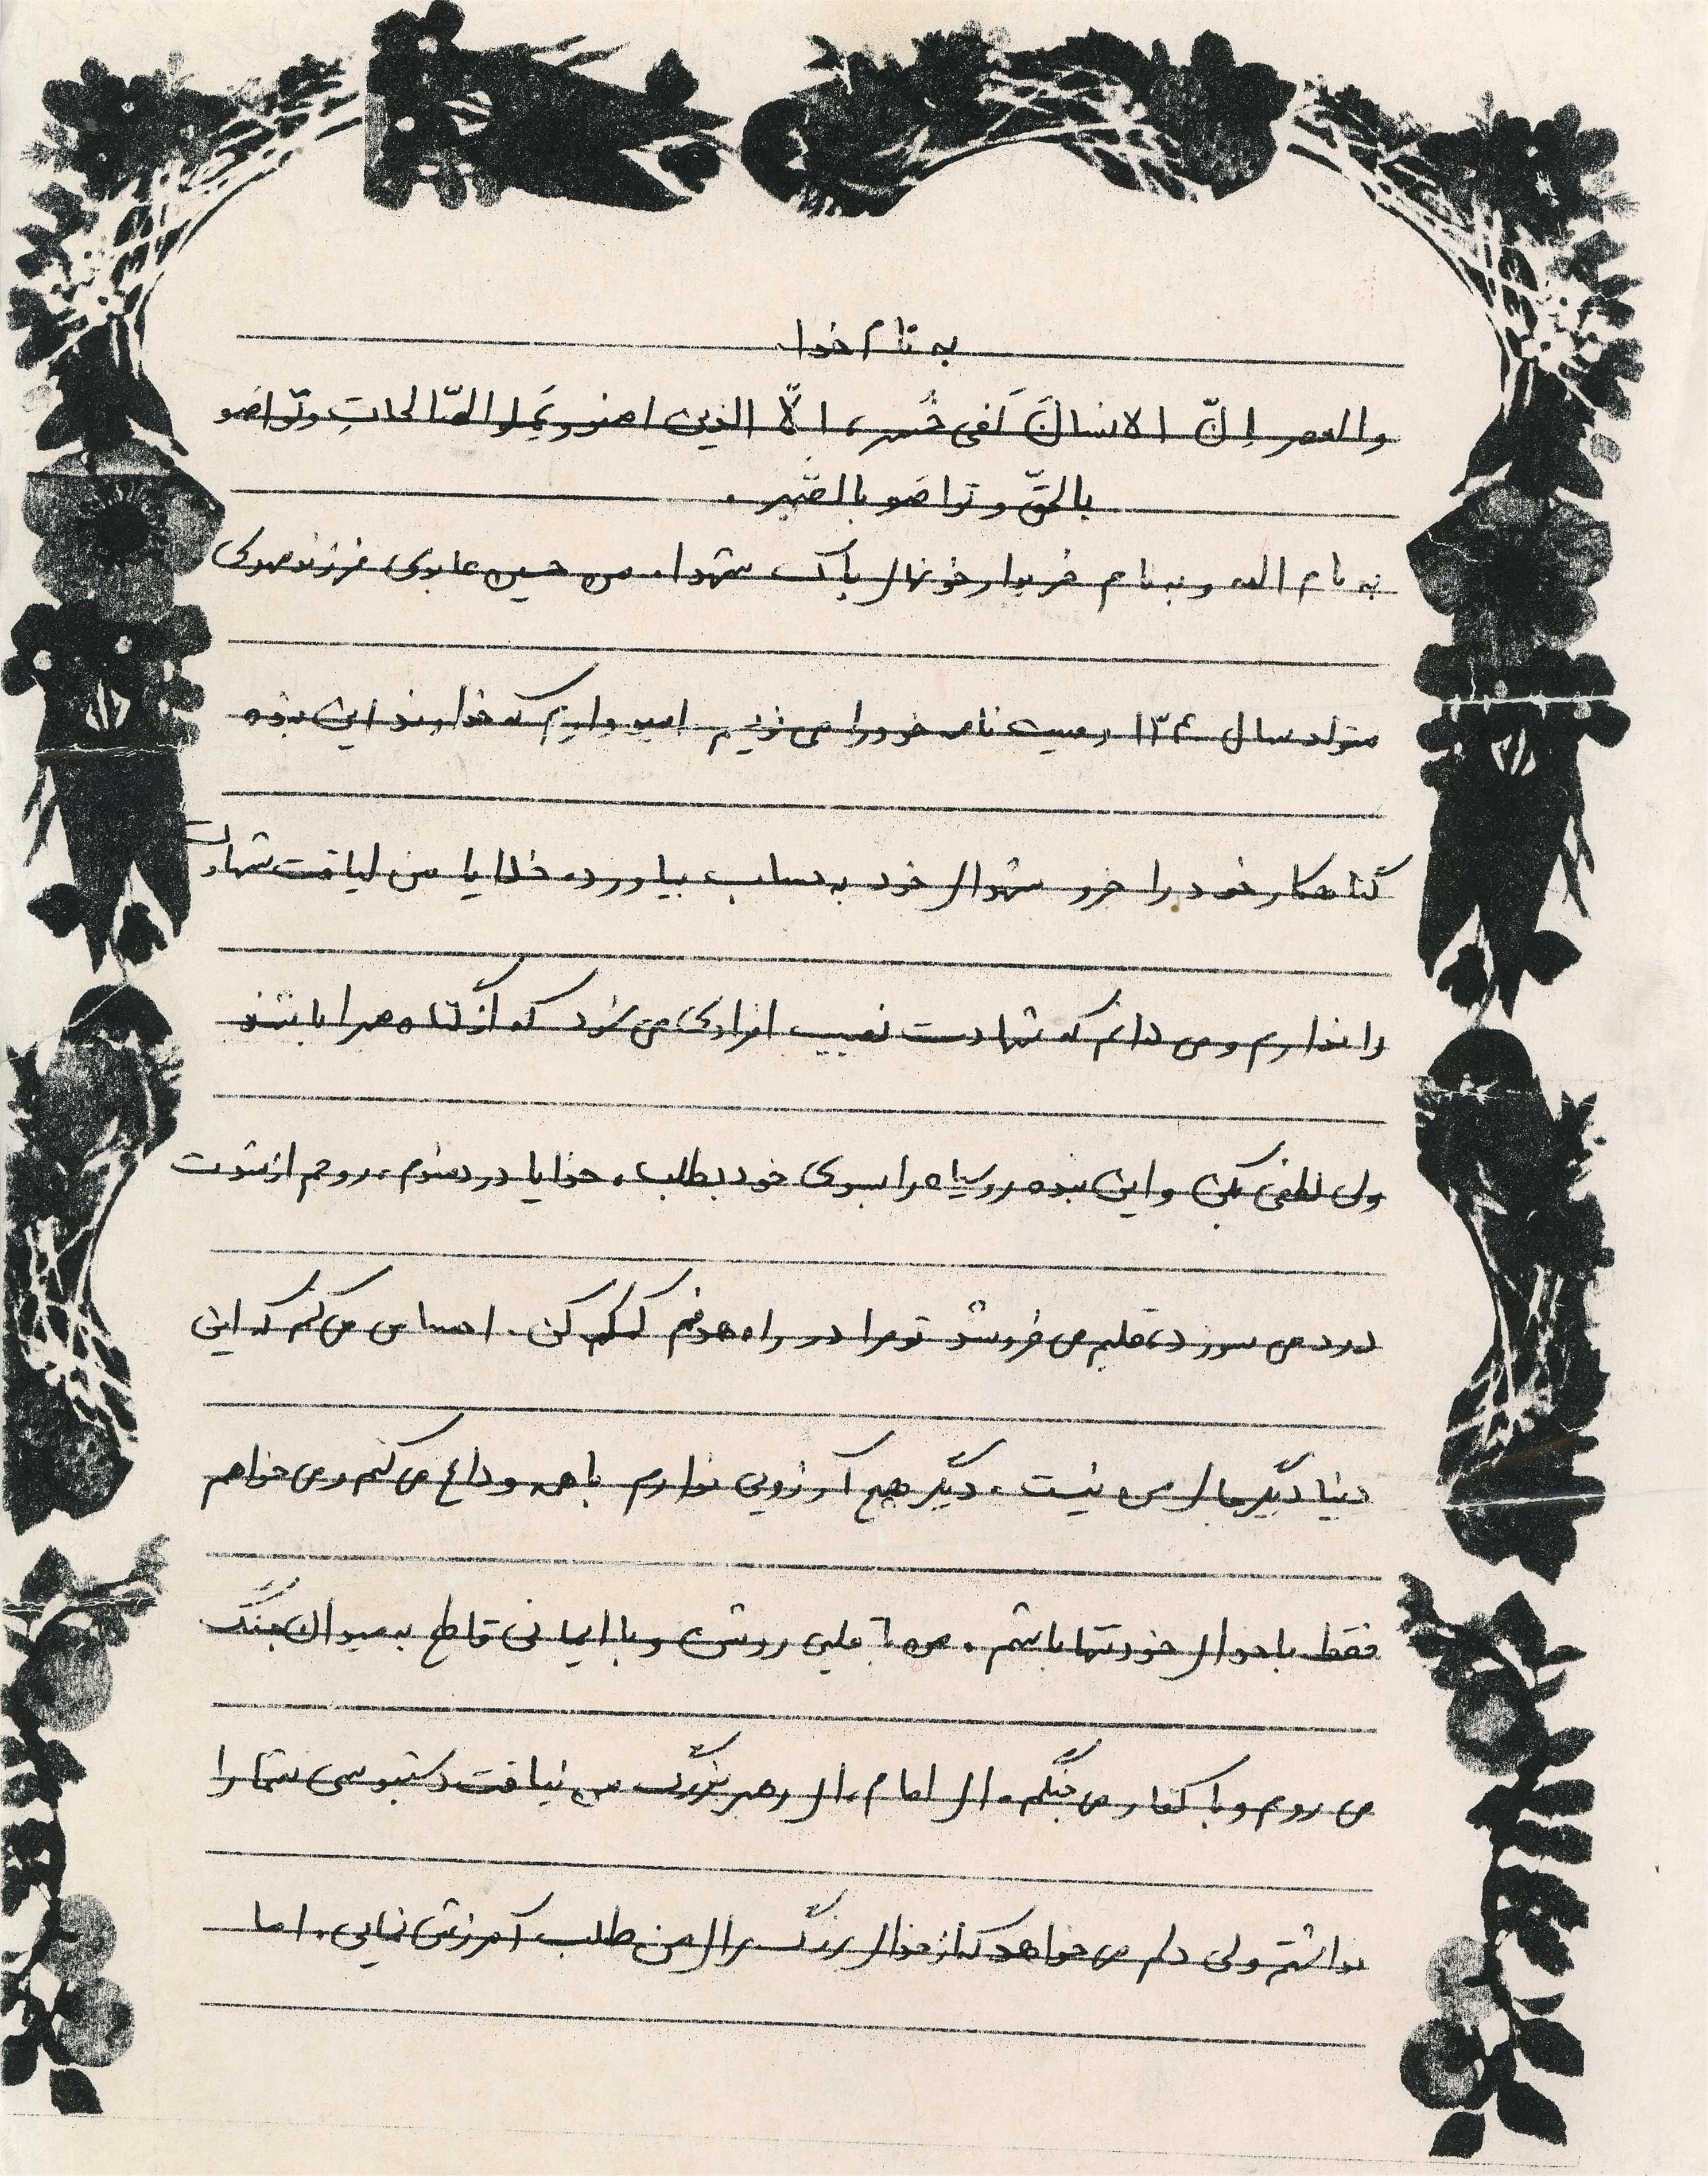 به نام خدا
والعصر اِنّ الانسانَ لَفی خُسر، الّا الذین امنو و عَمِلو الصّالحاتِ و تَواصَو
بالحَقِّ و تواصَو بالصَّبر.
به نام الله و به نام خریدار خونهای پاک شهدا. من حسین عابدی فرزند مهدی
متولد سال ۱۳۴۰ وصیت نامه خود را می نویسم امیدوارم که خداوند این بنده
گناهکار خود را جزو شهدای خود به حساب بیاورد. خدایا من لیاقت شهادت
را ندارم و می دانم که شهادت نصیب افرادی می شود که از گناه مبرا باشند
ولی لطفی بکن و این بنده رو سیاه را بسوی خود بطلب. خدایا دردمندم، روحم از شدت
درد می سوزد، قلبم می خروشد تو مرا در راه هدفم کمکم کن. احساس می کنم که این
دنیا دیگر جای من نیست، دیگر هیچ آرزویی ندارم با همه وداع می کنم و می خواهم
فقط با خدای خود تنها باشم. من با قلبی روشن و با ایمانی قاطع به میدان جنگ
می روم و با کفار می جنگم. ای امام، ای رهبر بزرگ من لیاقت دستبوسی شما را
نداشتم ولی دلم می خواهد که از خدای بزرگ برای من طلب آمرزش نمایی. اما